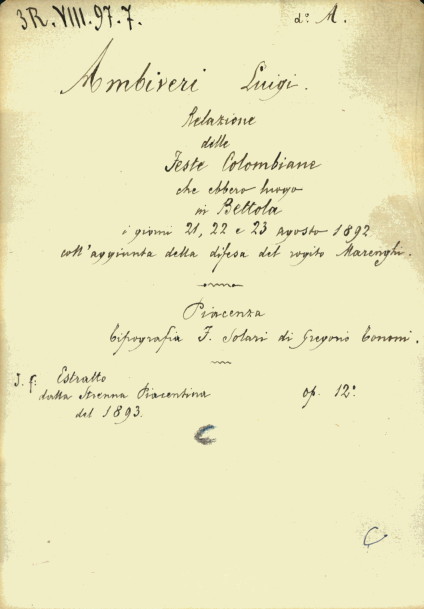 3R. VIII. 97. 7. d.º A.
Ambiveri Luigi.
Relazione
delle
Feste Colombiane
che ebbero luogo
in Bettola
i giorni 21, 22 e 23 agosto 1892
coll'aggiunta della difesa del rogito Marenghi.
Piacenza
Tipografia F. Solari di Gregorio Tononi.
Estratto
dalla Strenna Piacentina op. 12º
del 1893.
C
C